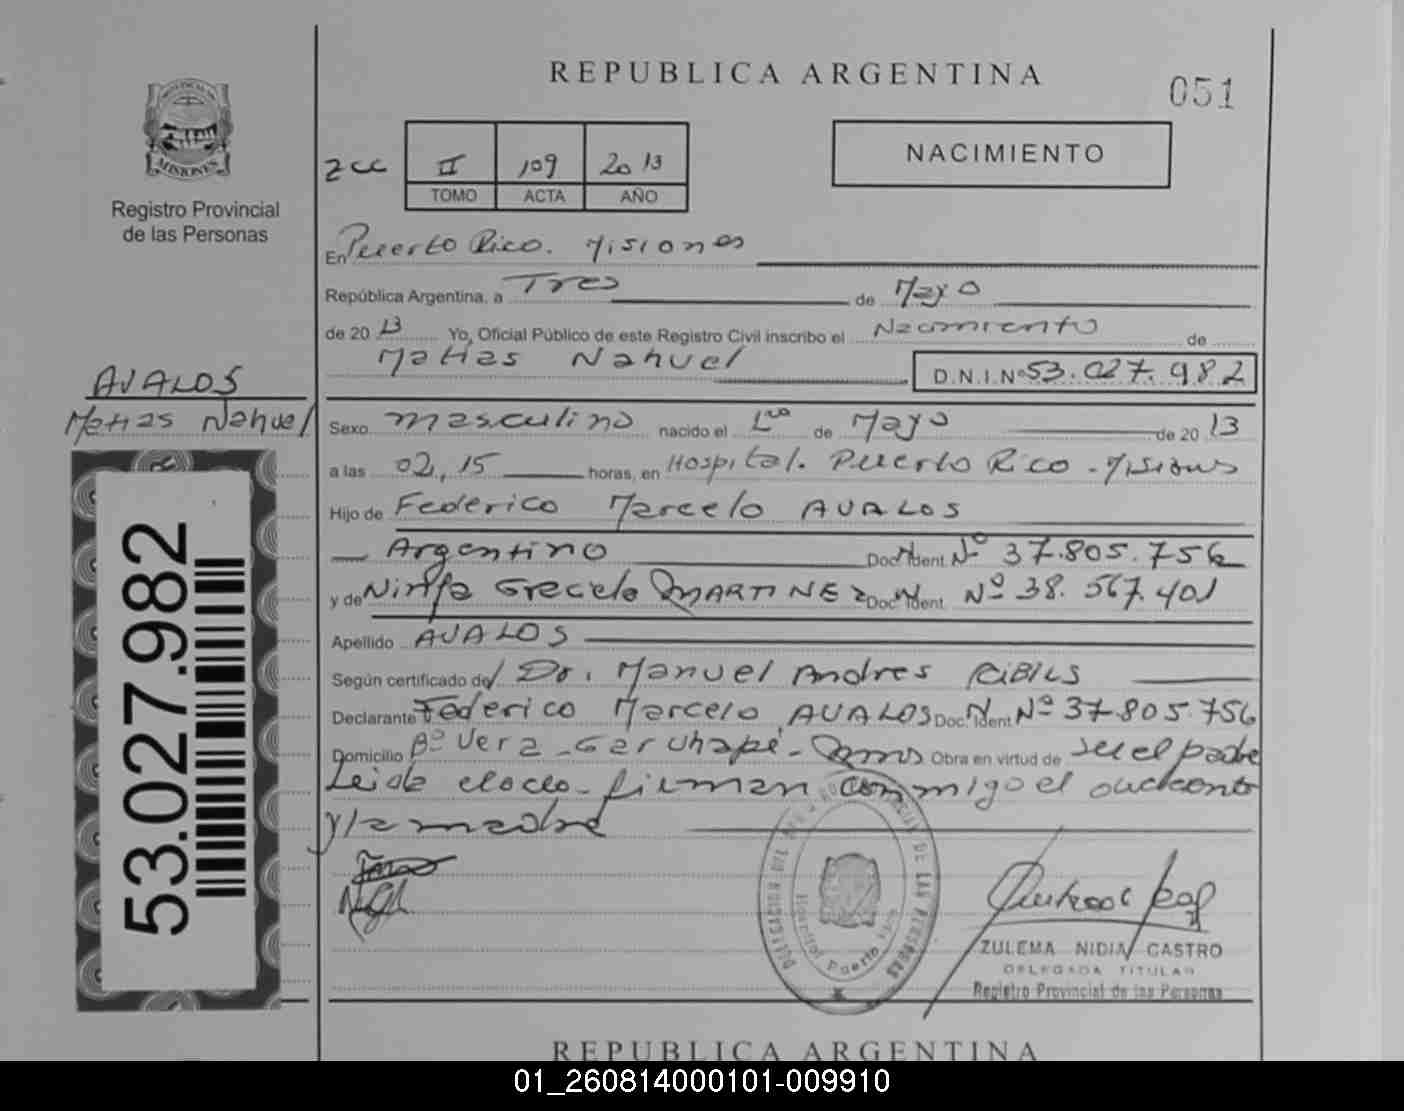 REPUBLICA ARGENTINA
051
PROVINCIA DE
MISIONES
Registro Provincial
de las Personas
2cc II 109 2013
TOMO ACTA AÑO
NACIMIENTO
En Puerto Rico. Misiones
República Argentina, a Tres de Mayo
de 2013 Yo, Oficial Público de este Registro Civil inscribo el Nacimiento de
Matias Nahuel D.N.I.Nº 53.027.982
AVALOS
Matias Nahuel
Sexo masculino nacido el 1ro de Mayo de 2013
a las 02,15 horas, en Hospital. Puerto Rico - Misiones
Hijo de Federico Marcelo AVALOS
Argentino Doc. Ident. Nº 37.805.756
y de Ninfa Graciela MARTINEZ Doc. Ident. Nº 38.567.401
Apellido AVALOS
Según certificado del Dr. Manuel Andres RIBILS
Declarante Federico Marcelo AVALOS Doc. Ident. Nº 37.805.756
Domicilio Bº Vera - Garuhapé - Obra en virtud de ser el padre
Leida el acta - firman conmigo el declarante
y la madre
53.027.982
DE LAS PERSONAS
Hospital Puerto Rico
ZULEMA NIDIA CASTRO
DELEGADA TITULAR
Registro Provincial de las Personas
REPUBLICA ARGENTINA
01_260814000101-009910